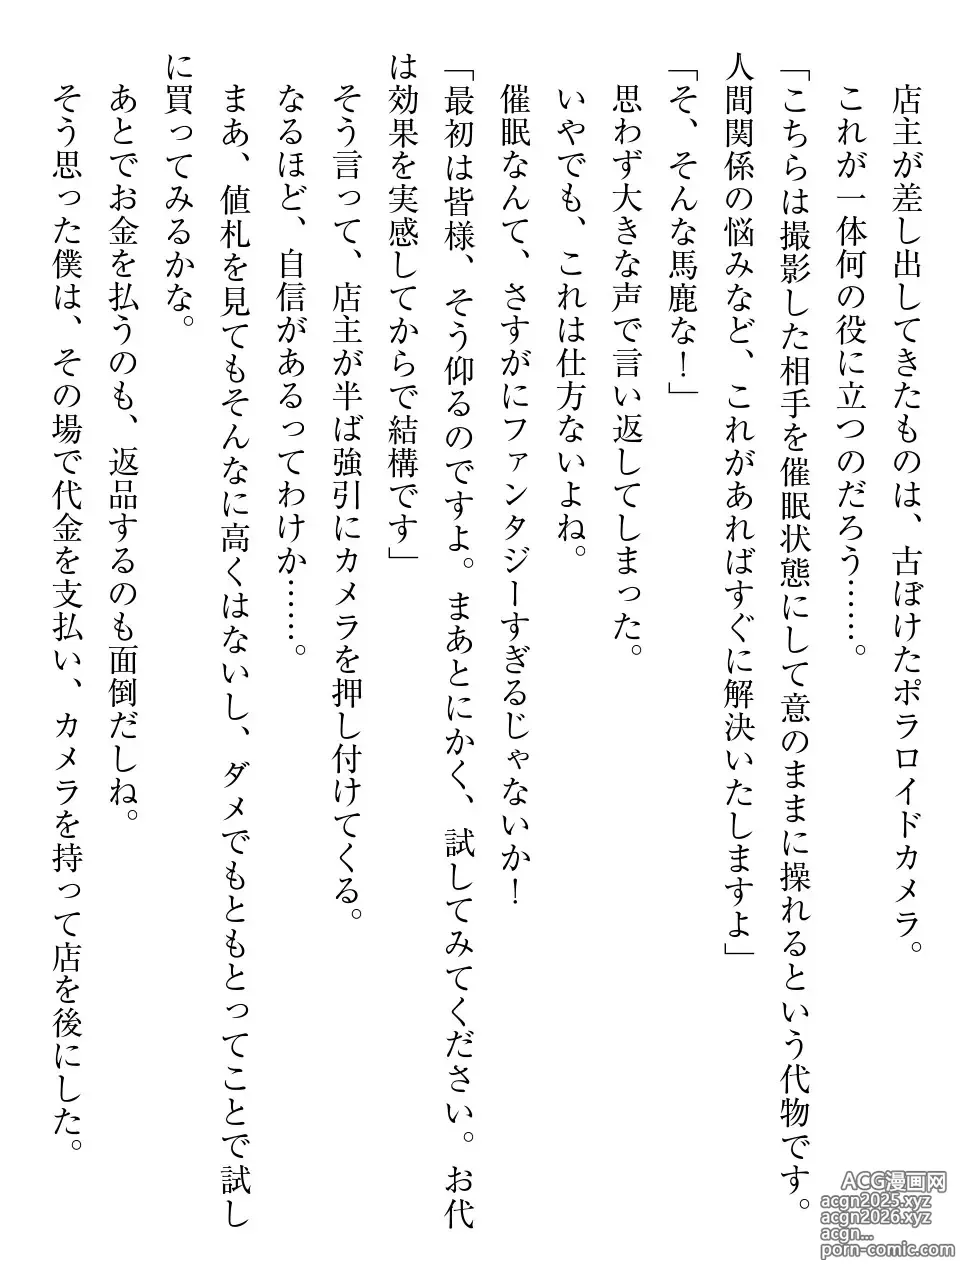 店主が差し出してきたものは、古ぼけたポラロイドカメラ。
これが一体何の役に立つのだろう……。
「こちらは撮影した相手を催眠状態にして意のままに操れるという代物です。
人間関係の悩みなど、これがあればすぐに解決いたしますよ」
「そ、そんな馬鹿な！」
思わず大きな声で言い返してしまった。
いやでも、これは仕方ないよね。
催眠なんて、さすがにファンタジーすぎるじゃないか！
「最初は皆様、そう仰るのですよ。まあとにかく、試してみてください。お代
は効果を実感してからで結構です」
そう言って、店主が半ば強引にカメラを押し付けてくる。
なるほど、自信があるってわけか……。
まあ、値札を見てもそんなに高くはないし、ダメでもともとってことで試し
に買ってみるかな。
あとでお金を払うのも、返品するのも面倒だしね。
そう思った僕は、その場で代金を支払い、カメラを持って店を後にした。
ACG漫画网
acgn2025.xyz
acgn2026.xyz
acgn...
porn-comic.com